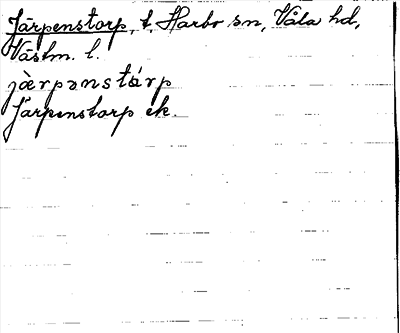 Järpenstorp, t, Harbo sn, Våla hd,
Västm. l.
jàrpənstárp
Järpenstorp ek.